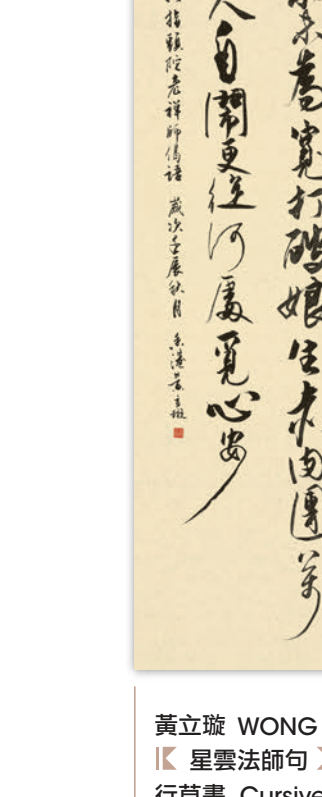 為寬打破娘生赤肉團萬
人自鬧更從何處覓心安
指頭陀老禪師偈語 歲次壬辰秋月 香港黃立璇
黃立璇 WONG
星雲法師句
行草書 Cursive